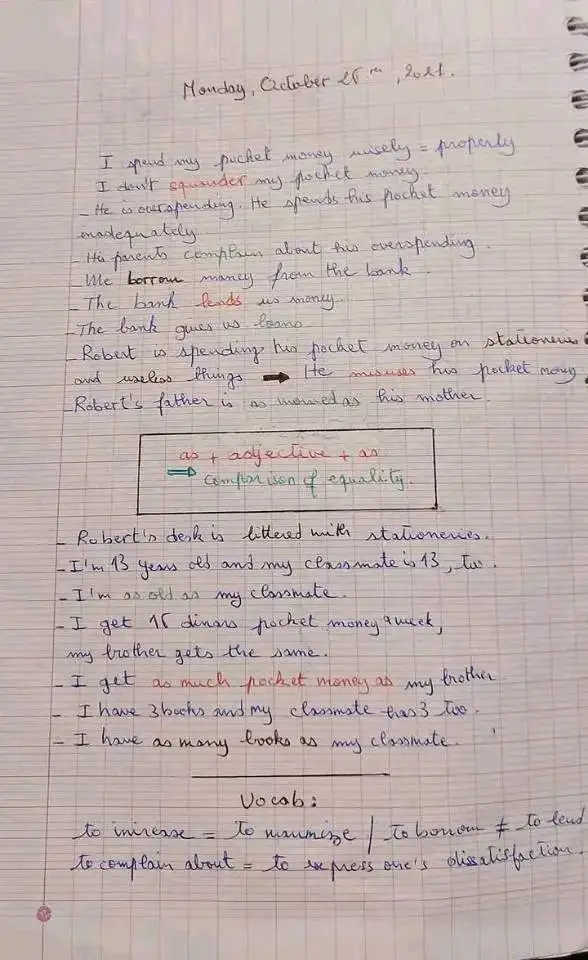 Monday, October 25th, 2021.
I spend my pocket money wisely = properly
I don't squander my pocket money.
- He is overspending. He spends his pocket money
inadequately
- His parents complain about his overspending.
- We borrow money from the bank.
- The bank lends us money.
- The bank gives us loans
- Robert is spending his pocket money on stationeries
and useless things → He misuses his pocket money.
- Robert's father is as worried as his mother.
as + adjective + as
⇒ comparison of equality.
- Robert's desk is littered with stationeries.
- I'm 13 years old and my classmate is 13, too.
- I'm as old as my classmate.
- I get 15 dinars pocket money a week,
my brother gets the same.
- I get as much pocket money as my brother
- I have 3 books and my classmate has 3 too.
- I have as many books as my classmate.
Vocab:
to increase = to maximize / to borrow ≠ to lend
to complain about = to express one's dissatisfaction.